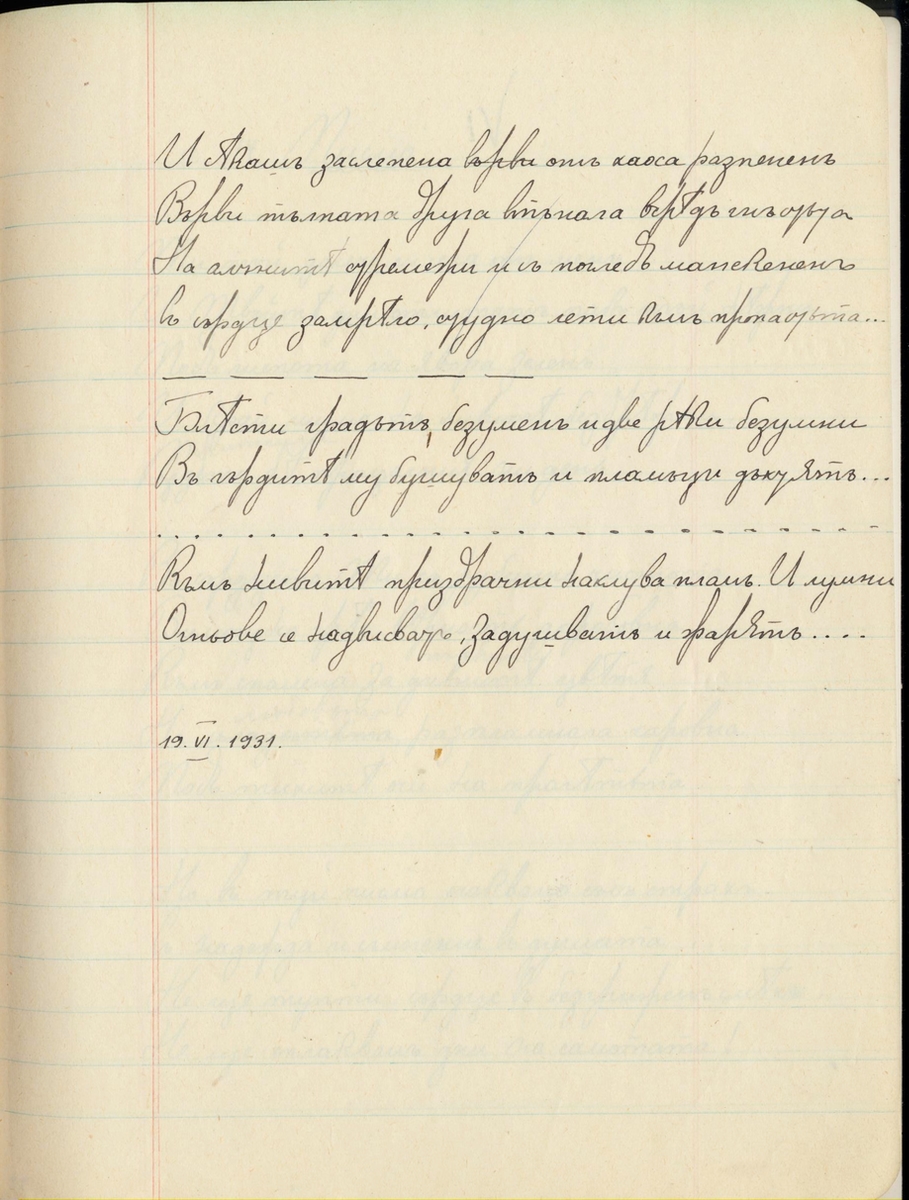 И сѣкашъ заслепена върви отъ хаоса разпененъ
Върви тълпата друга втѫпала срѣдъ
На алчнитѣ стремежи и съ погледъ манекененъ
Въ сърдце замрѣло, студно лети къмъ пропастьта...
— — — — —
Блѣсти градътъ, безуменъ и две рѣки безумни
Въ гърдитѣ му бушуватъ и пламъци
. . . . . . . . . . . . . . . . . . . .
Къмъ нивитѣ призрачни наклува пламъ. И шумни
Огньове се надвисват, задушватъ и жарятъ....
19.VI.1931.